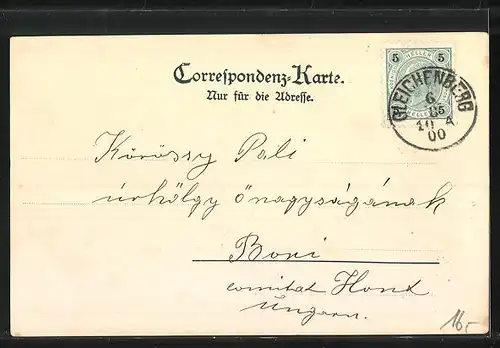 Correspondenz-Karte.
Nur für die Adresse.
5 HELLER 5
GLEICHENBERG
6
8
10 A
00
Kőrössy Pali
úrhölgy őnagyságának
Bori
comitat Hont
Ungarn.
16,-